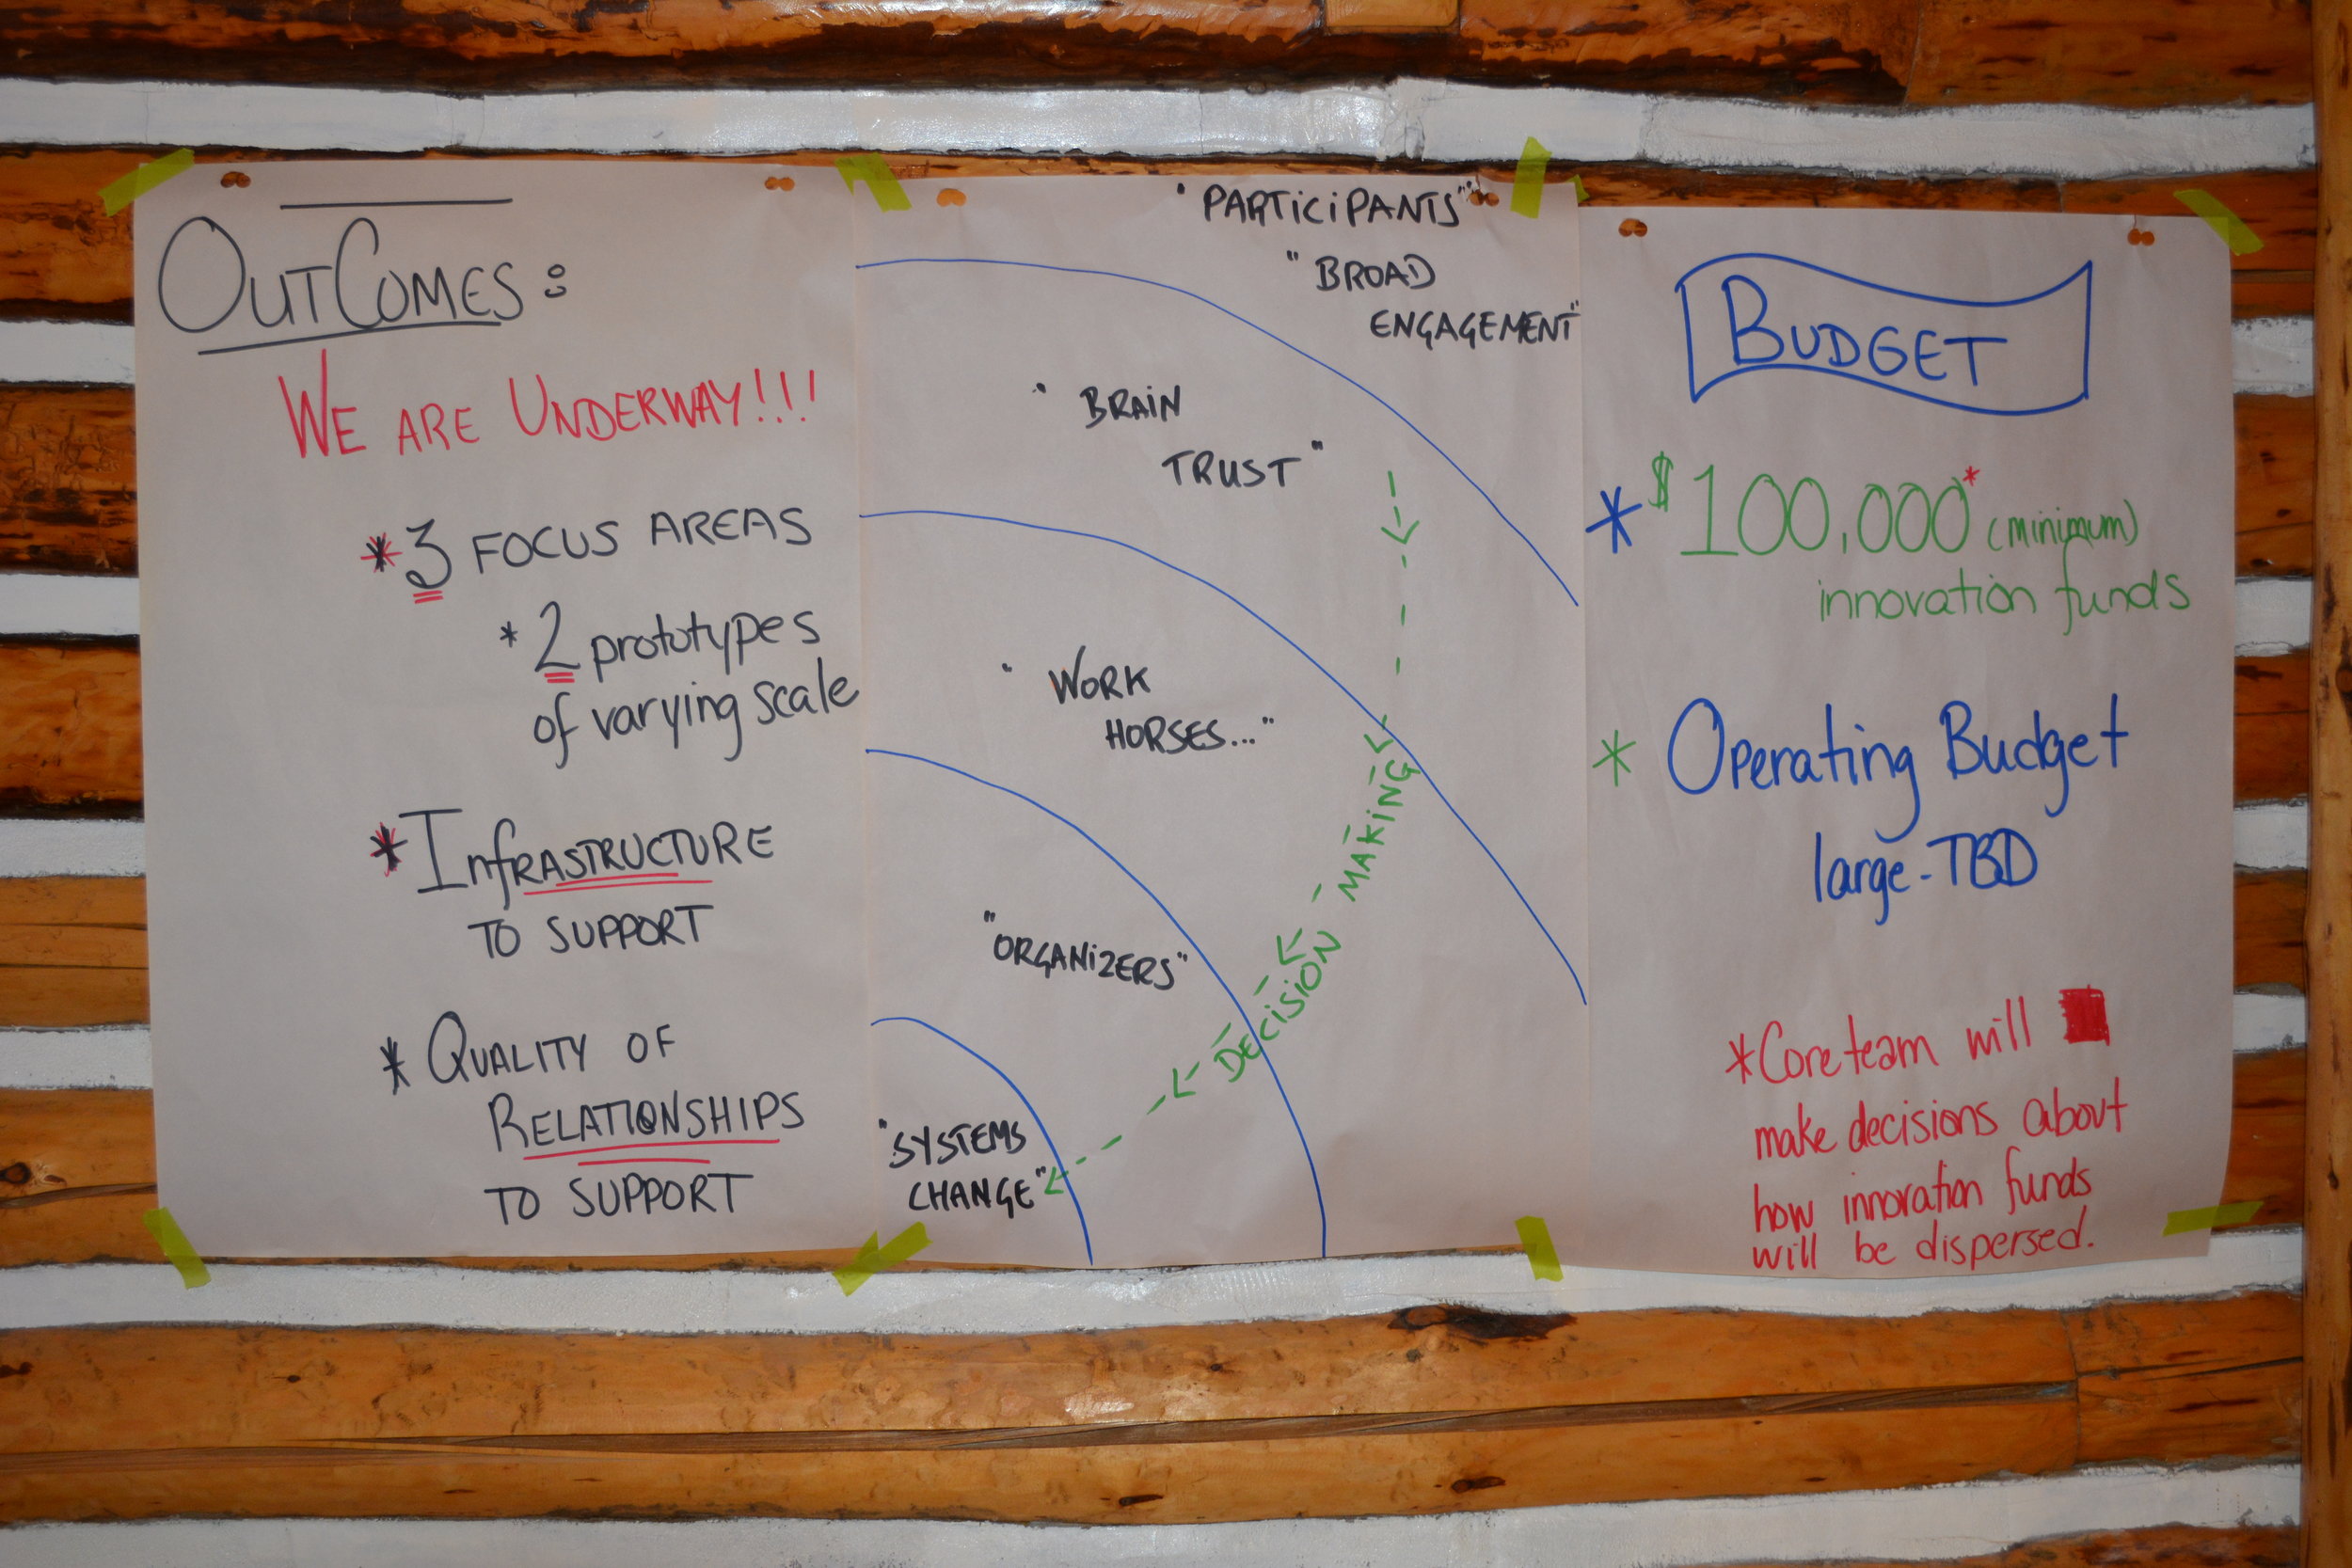 OUTCOMES:
WE ARE UNDERWAY!!!
* 3 FOCUS AREAS
* 2 prototypes
of varying scale
* InfRASTRUCTURE
TO SUPPORT
* QUALITY OF
RELATIONSHIPS
TO SUPPORT
"PARTiCiPANTS"
"BROAD
ENGAGEMENT"
"BRAiN
TRUST"
"WORK
HORSES..."
"ORGANiZERS"
"SYSTEMS
CHANGE"
DECiSiON MAKiNG
BUDGET
* $100,000* (minimum)
innovation funds
* Operating Budget
large-TBD
*Core team will
make decisions about
how innovation funds
will be dispersed.